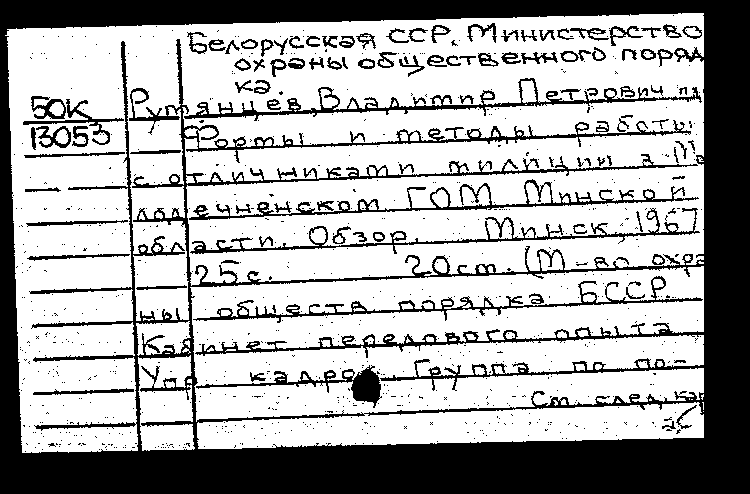 Белорусская ССР. Министерство
охраны общественного поряд
ка.
50к Румянцев, Владимир Петрович
13053 Формы и методы работы
с отличниками милиции в Мо
лодечненском ГОМ Минской
области. Обзор. Минск, 1967
25с. 20см. (М-во охра
ны обществ порядка БССР.
Кабинет передового опыта
Упр кадров. Группа по по-
См. след. кар